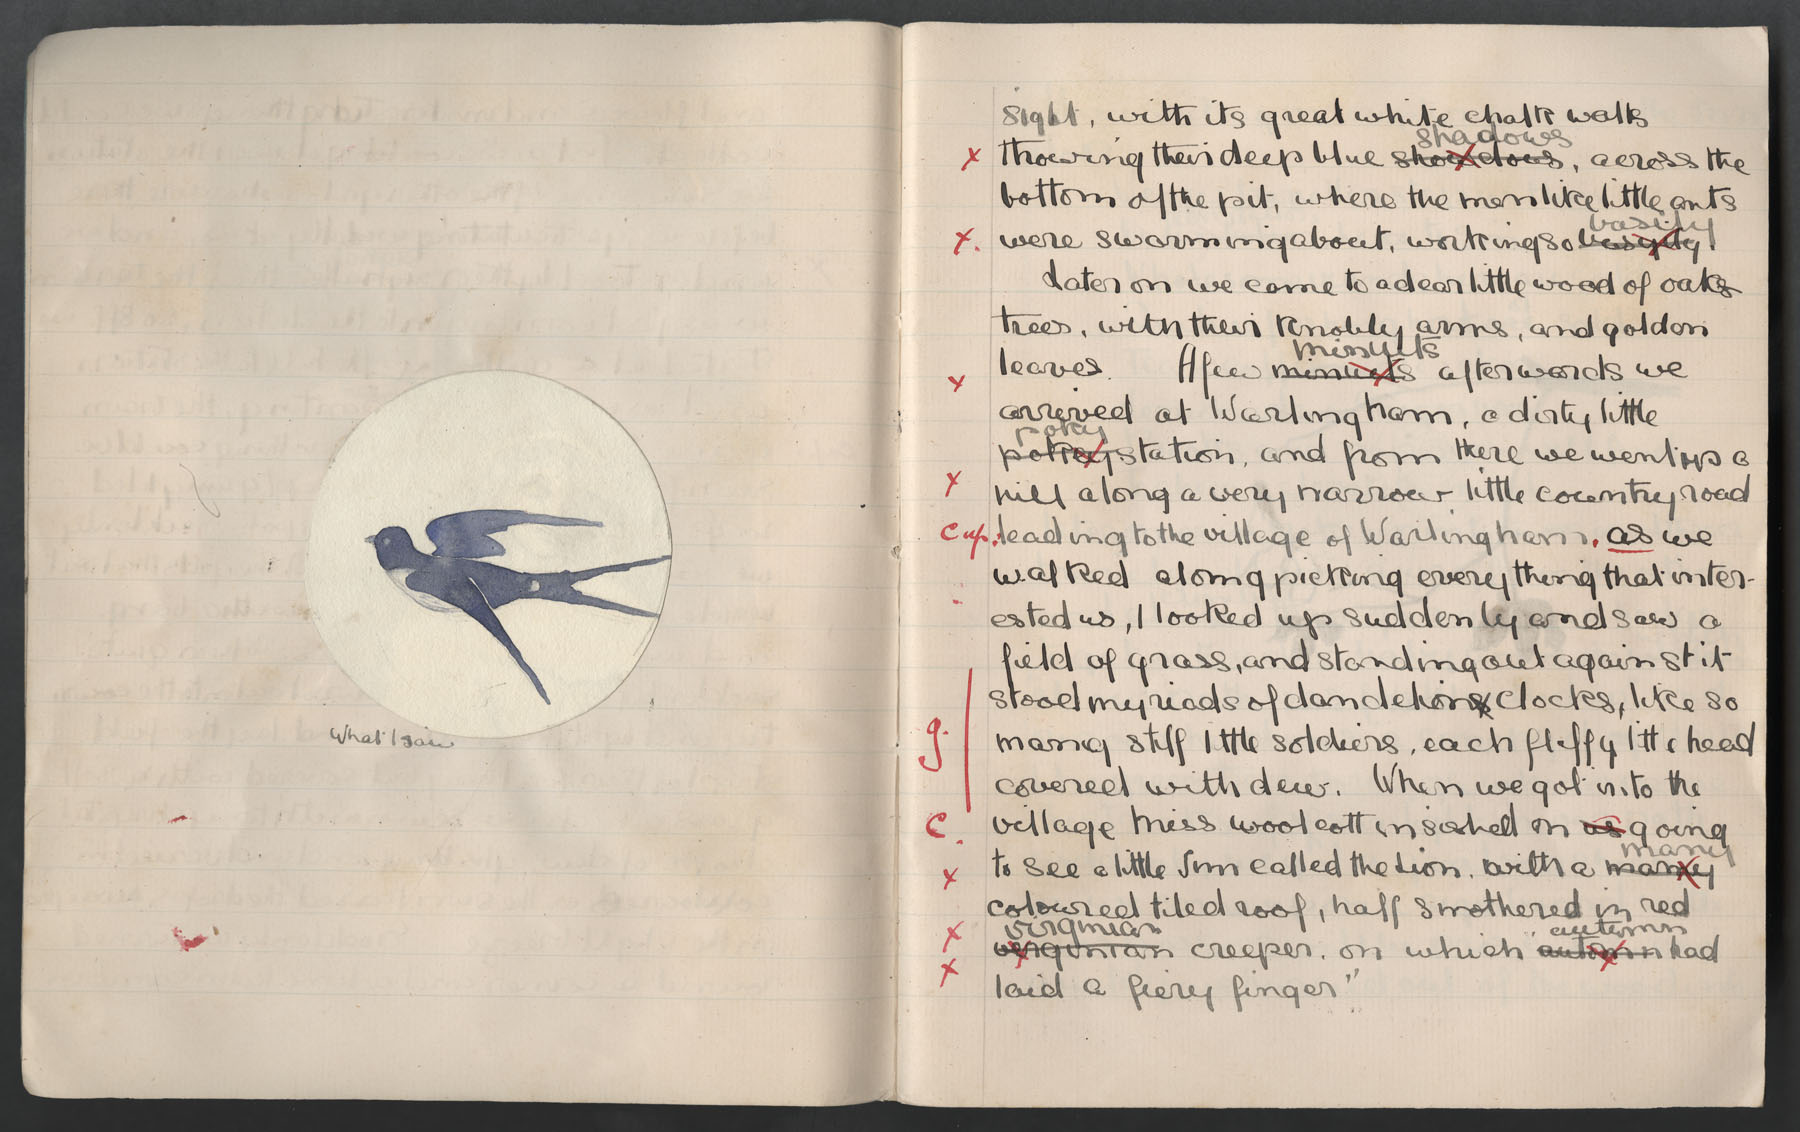 What I saw
sight, with its great white chalk walls
shadows
x throwing their deep blue shawdows, across the
bottom of the pit, where the men like little ants
busily
x. were swarming about, working so busyily!
Later on we came to a dear little wood of oaks
trees, with their knobbly arms, and golden
minuets
leaves. A few minuets afterwards we
x
arrived at Warlingham, a dirty little
poky
pokey station, and from there we went up a
x hill along a very narrow little country road
cap. leading to the village of Warlingham. as we
walked along picking every thing that inter-
ested us, I looked up suddenly and saw a
field of grass, and standing out against it
stood myriads of dandelions clocks, like so
g. many stiff little soldiers, each fluffy little head
covered with dew. When we got in to the
c. village Miss Woolcott insished on us going
many
x to see a little Inn called the Lion, with a many
coloured tiled roof, half smothered in red
virginian autumn
x verginian creeper, on which "automn had
x laid a fiery finger"